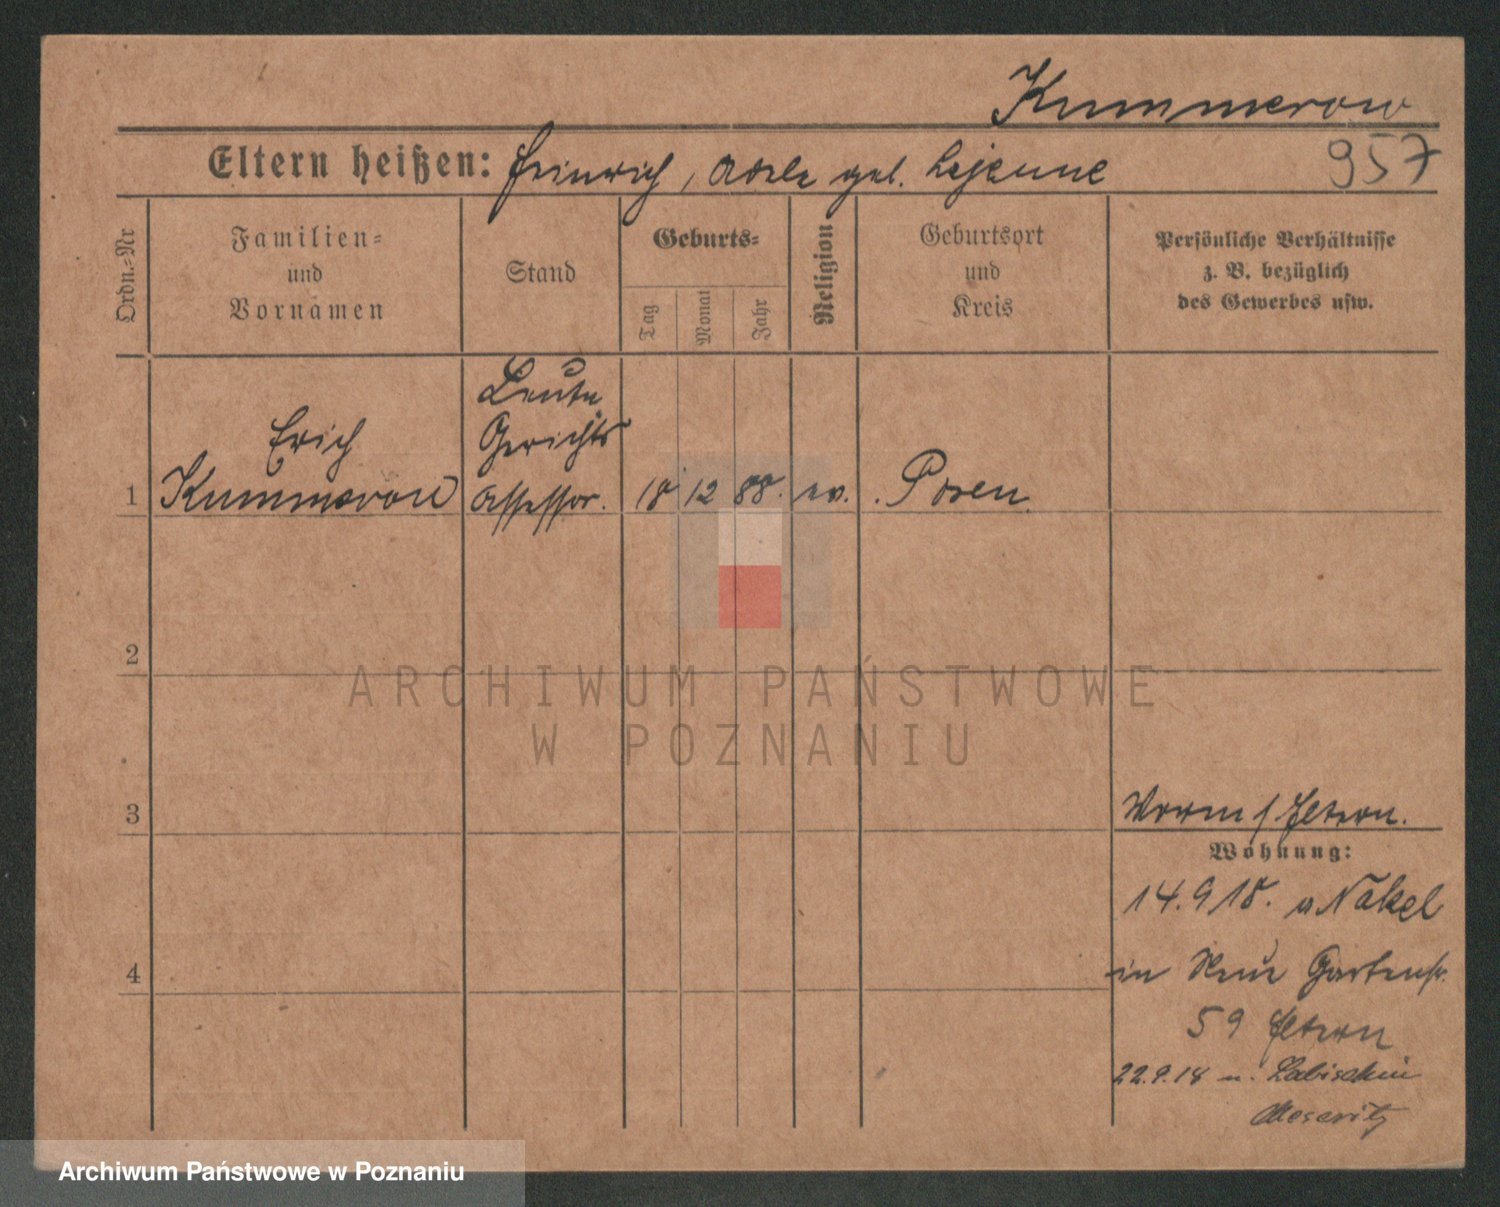 Kummerow
957
Eltern heißen: Heinrich, Adele geb. Lejeune
Ordn.-Nr
Familien-
und
Vornamen
Stand
Geburts-
Tag
Monat
Jahr
Religion
Geburtsort
und
Kreis
Persönliche Verhältnisse
z. B. bezüglich
des Gewerbes usw.
Erich
Gerichts
1 Kummerow Assessor. 18 12 88. ev. Posen.
2
ARCHIWUM PAŃSTWOWE
W POZNANIU
3
Eltern.
Wohnung:
14.9 18. Nakel
4
in Neue Gartenstr.
59 Eltern
22.9.18 n. Labischin
Meseritz
Archiwum Państwowe w Poznaniu